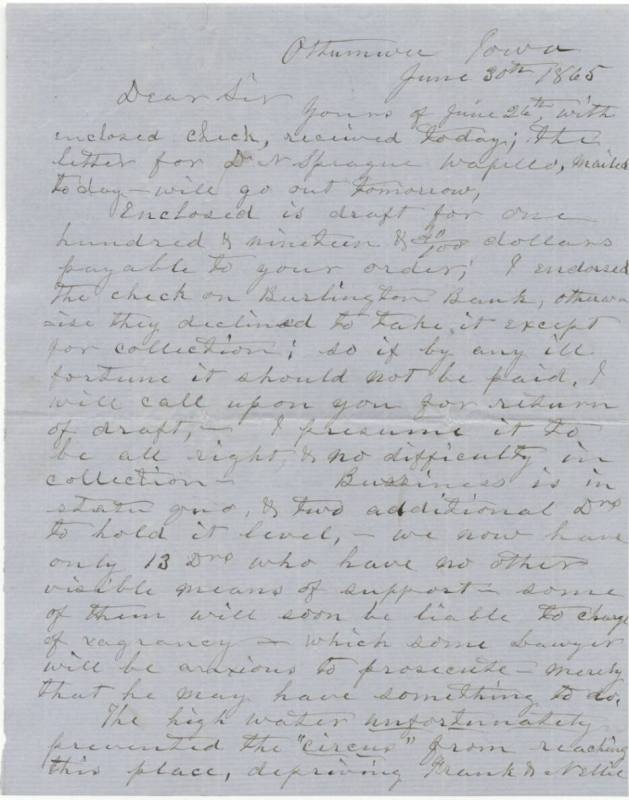 Ottumwa Iowa
June 30th 1865
Dear Sir
Yours of June 26th, with
enclosed check, received today; the
letter for Dr N Sprague Wapello, mailed
today - will go out tomorrow,
Enclosed is draft for one
hundred & nineteen & 20/100 dollars
payable to your order; I endorsed
the check on Burlington Bank, otherw-
-ise they declined to take it except
for collection; so if by any ill
fortune it should not be paid, I
will call upon you for return
of draft, - I presume it to
be all right, & no difficulty in
collection - Business is in
statu quo, & two additional Drs
to hold it level, - we now have
only 13 Drs who have no other
visible means of support - some
of them will soon be liable to charge
of vagrancy - which some Lawyer
will be anxious to prosecute - merely
that he may have something to do.
The high water unfortunately
prevented the "circus" from reaching
this place, depriving Frank & Nellie